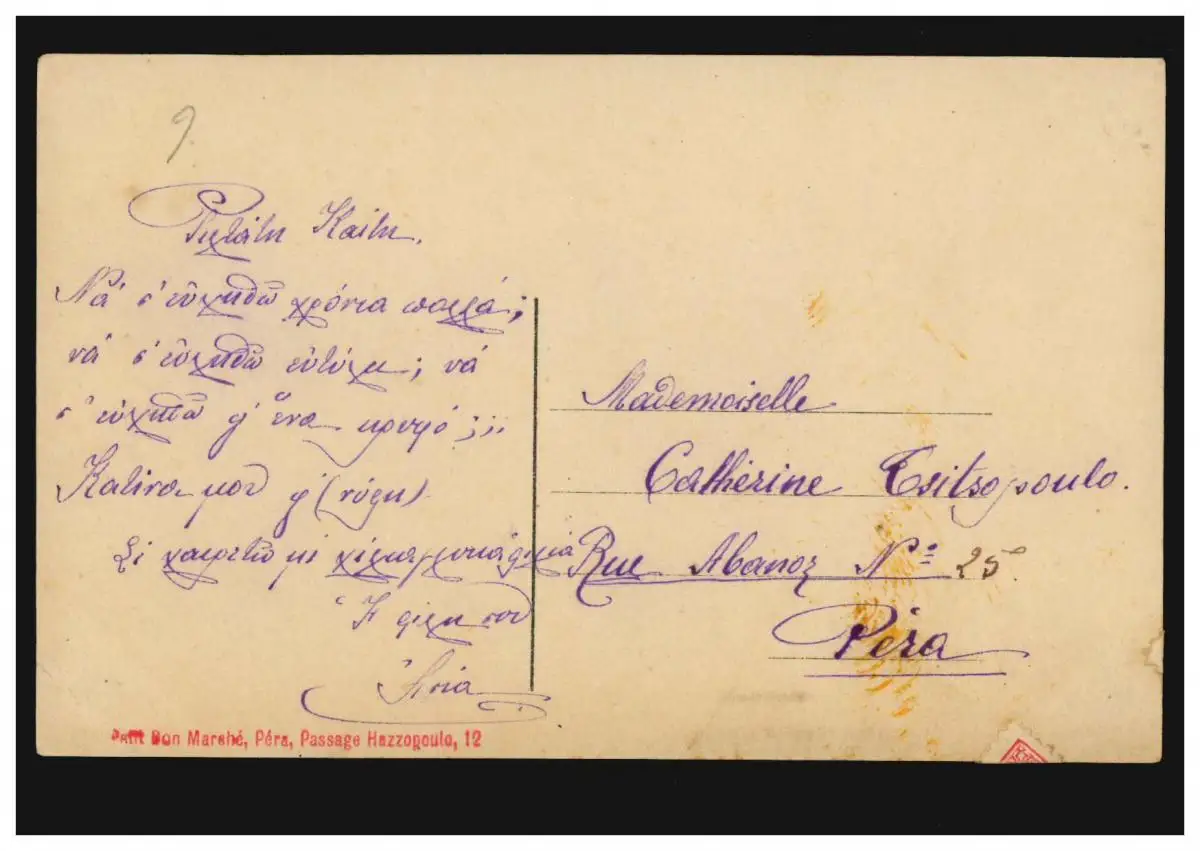 9
Γλυκειά Καίτη.
Νά σ' εὐχηθῶ χρόνια πολλά;
νά σ' εὐχηθῶ εὐτυχῆ; νά
σ' εὐχηθῶ γ' ἕνα κρυφό;;;
Κατίνα μου γ' (νύφη)
Σέ χαιρετῶ μέ γλυκά φιλιά
Ἡ φίλη σου
Mademoiselle
Catherine Tsitsopoulo.
Rue Abanoz Nº 25
Péra
Petit Bon Marché, Péra, Passage Hazzopoulo, 12